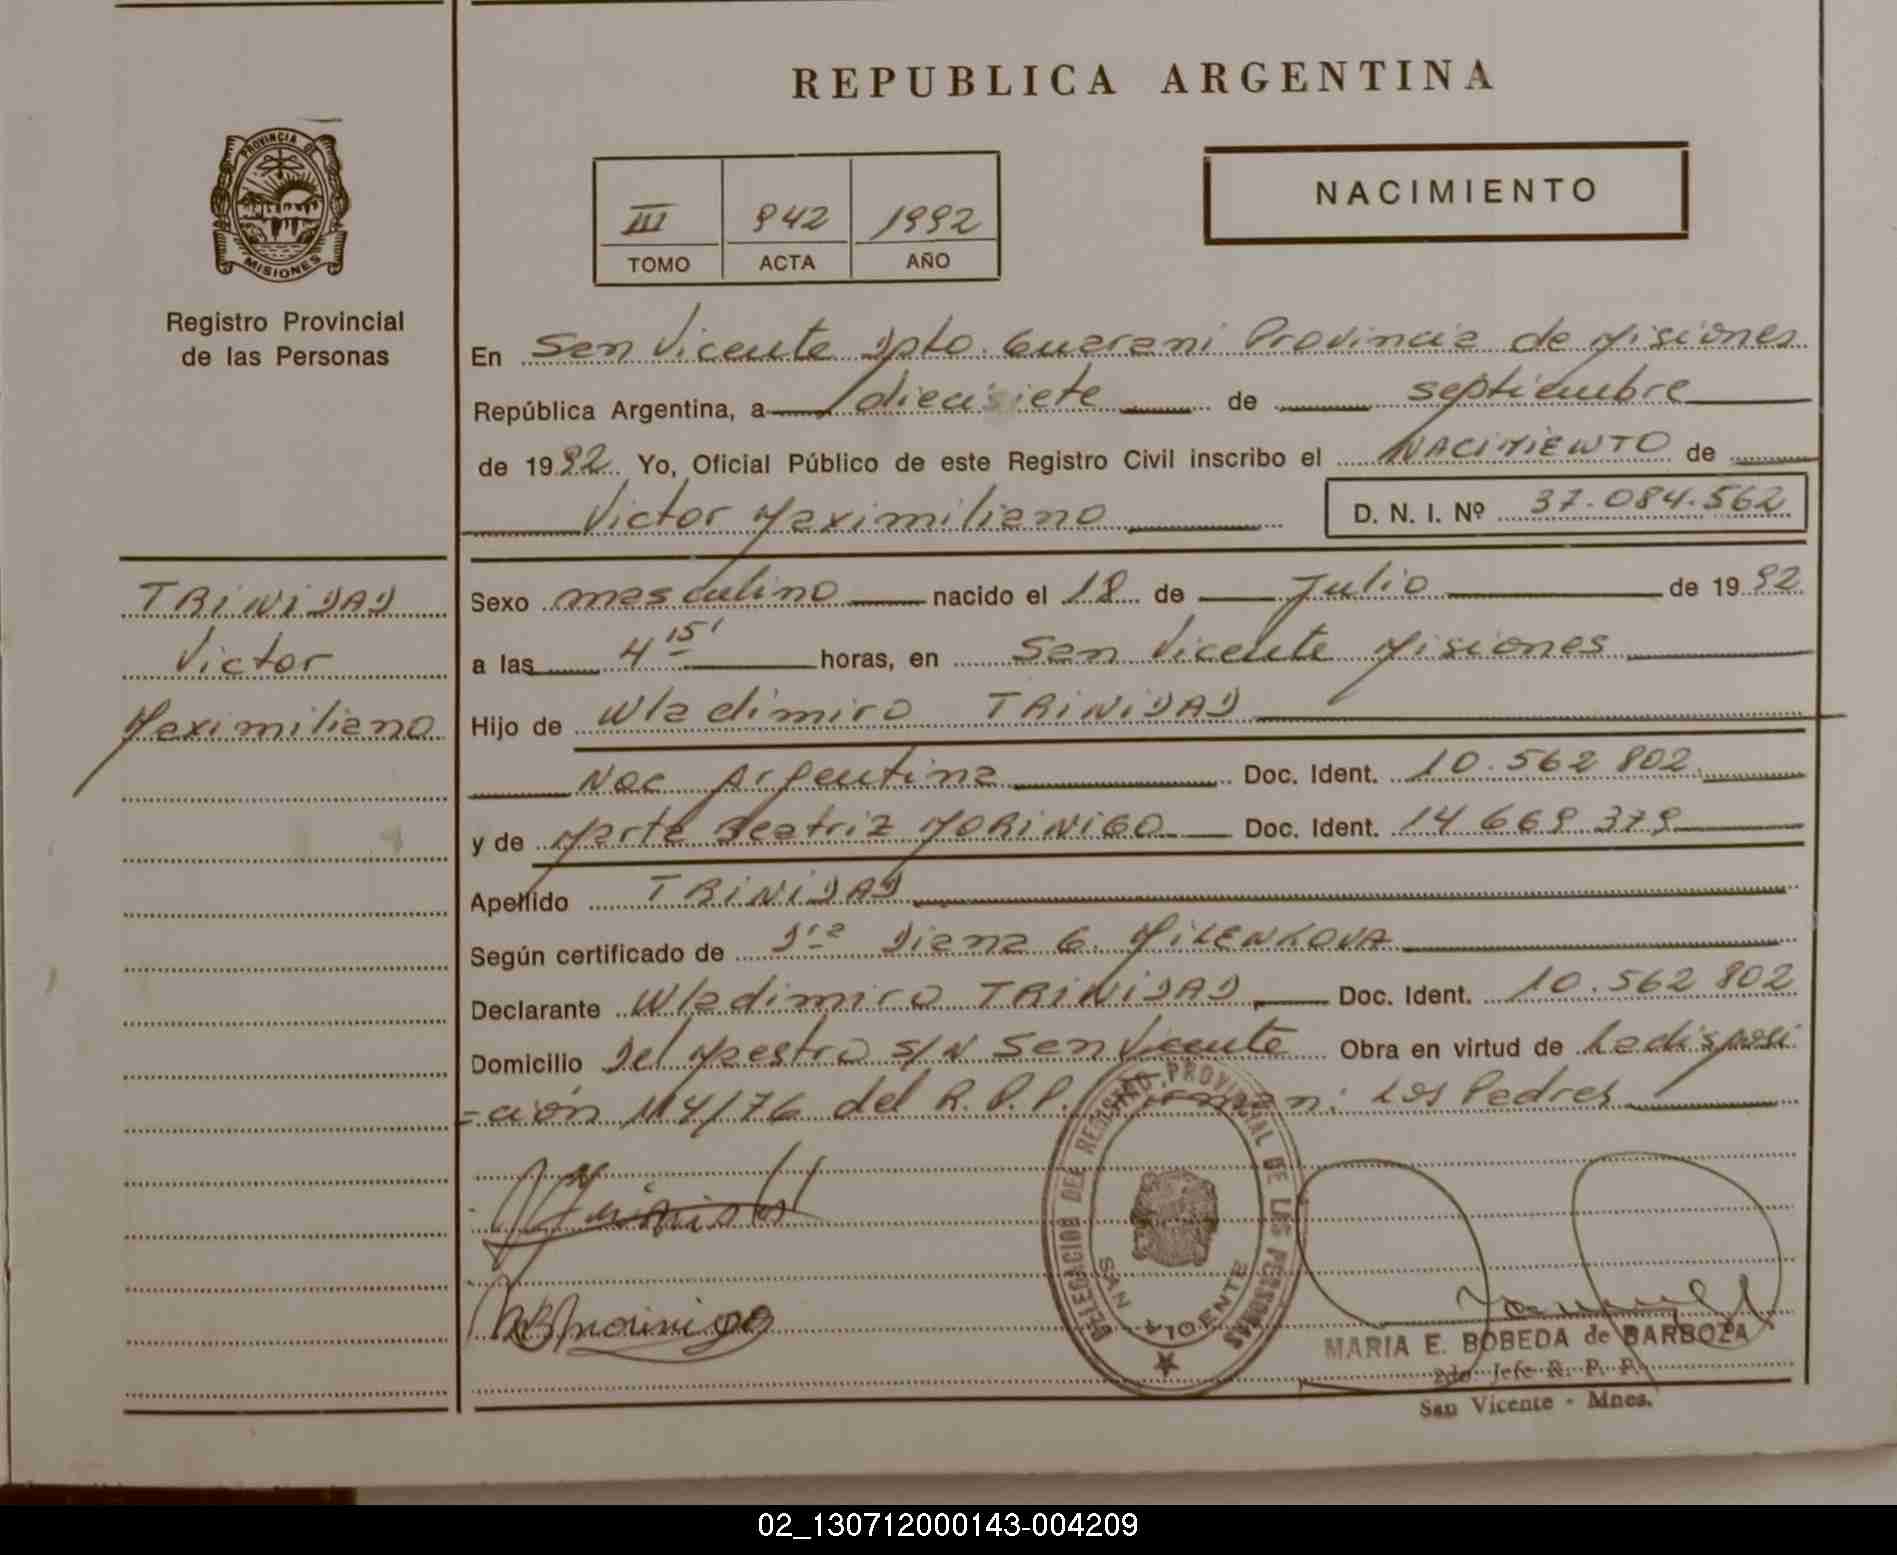 REPUBLICA ARGENTINA
PROVINCIA DE MISIONES
Registro Provincial
de las Personas
III 942 1992
TOMO ACTA AÑO
NACIMIENTO
En San Vicente Dpto. Guarani Provincia de Misiones
República Argentina, a diecisiete de septiembre
de 1992 Yo, Oficial Público de este Registro Civil inscribo el NACIMIENTO de
Victor Maximiliano D. N. I. Nº 37.084.562
TRINIDAD
Victor
Maximiliano
Sexo masculino nacido el 18 de Julio de 1992
a las 4 15' horas, en San Vicente Misiones
Hijo de Wladimiro TRINIDAD
Nac Argentina Doc. Ident. 10.562 802
y de Marta Beatriz MORINIGO Doc. Ident. 14 669 379
Apellido TRINIDAD
Según certificado de Dra Diana G. MILENKOVA
Declarante Wladimiro TRINIDAD Doc. Ident. 10.562 802
Domicilio Del Maestro S/N San Vicente Obra en virtud de La disposi
=ción 114/76 del R.P.P. Firman: Los Padres
DELEGACION DEL REGISTRO PROVINCIAL DE LAS PERSONAS
SAN VICENTE
MARIA E. BOBEDA de BARBOZA
2do Jefe R. P. P.
San Vicente - Mnes.
02_130712000143-004209